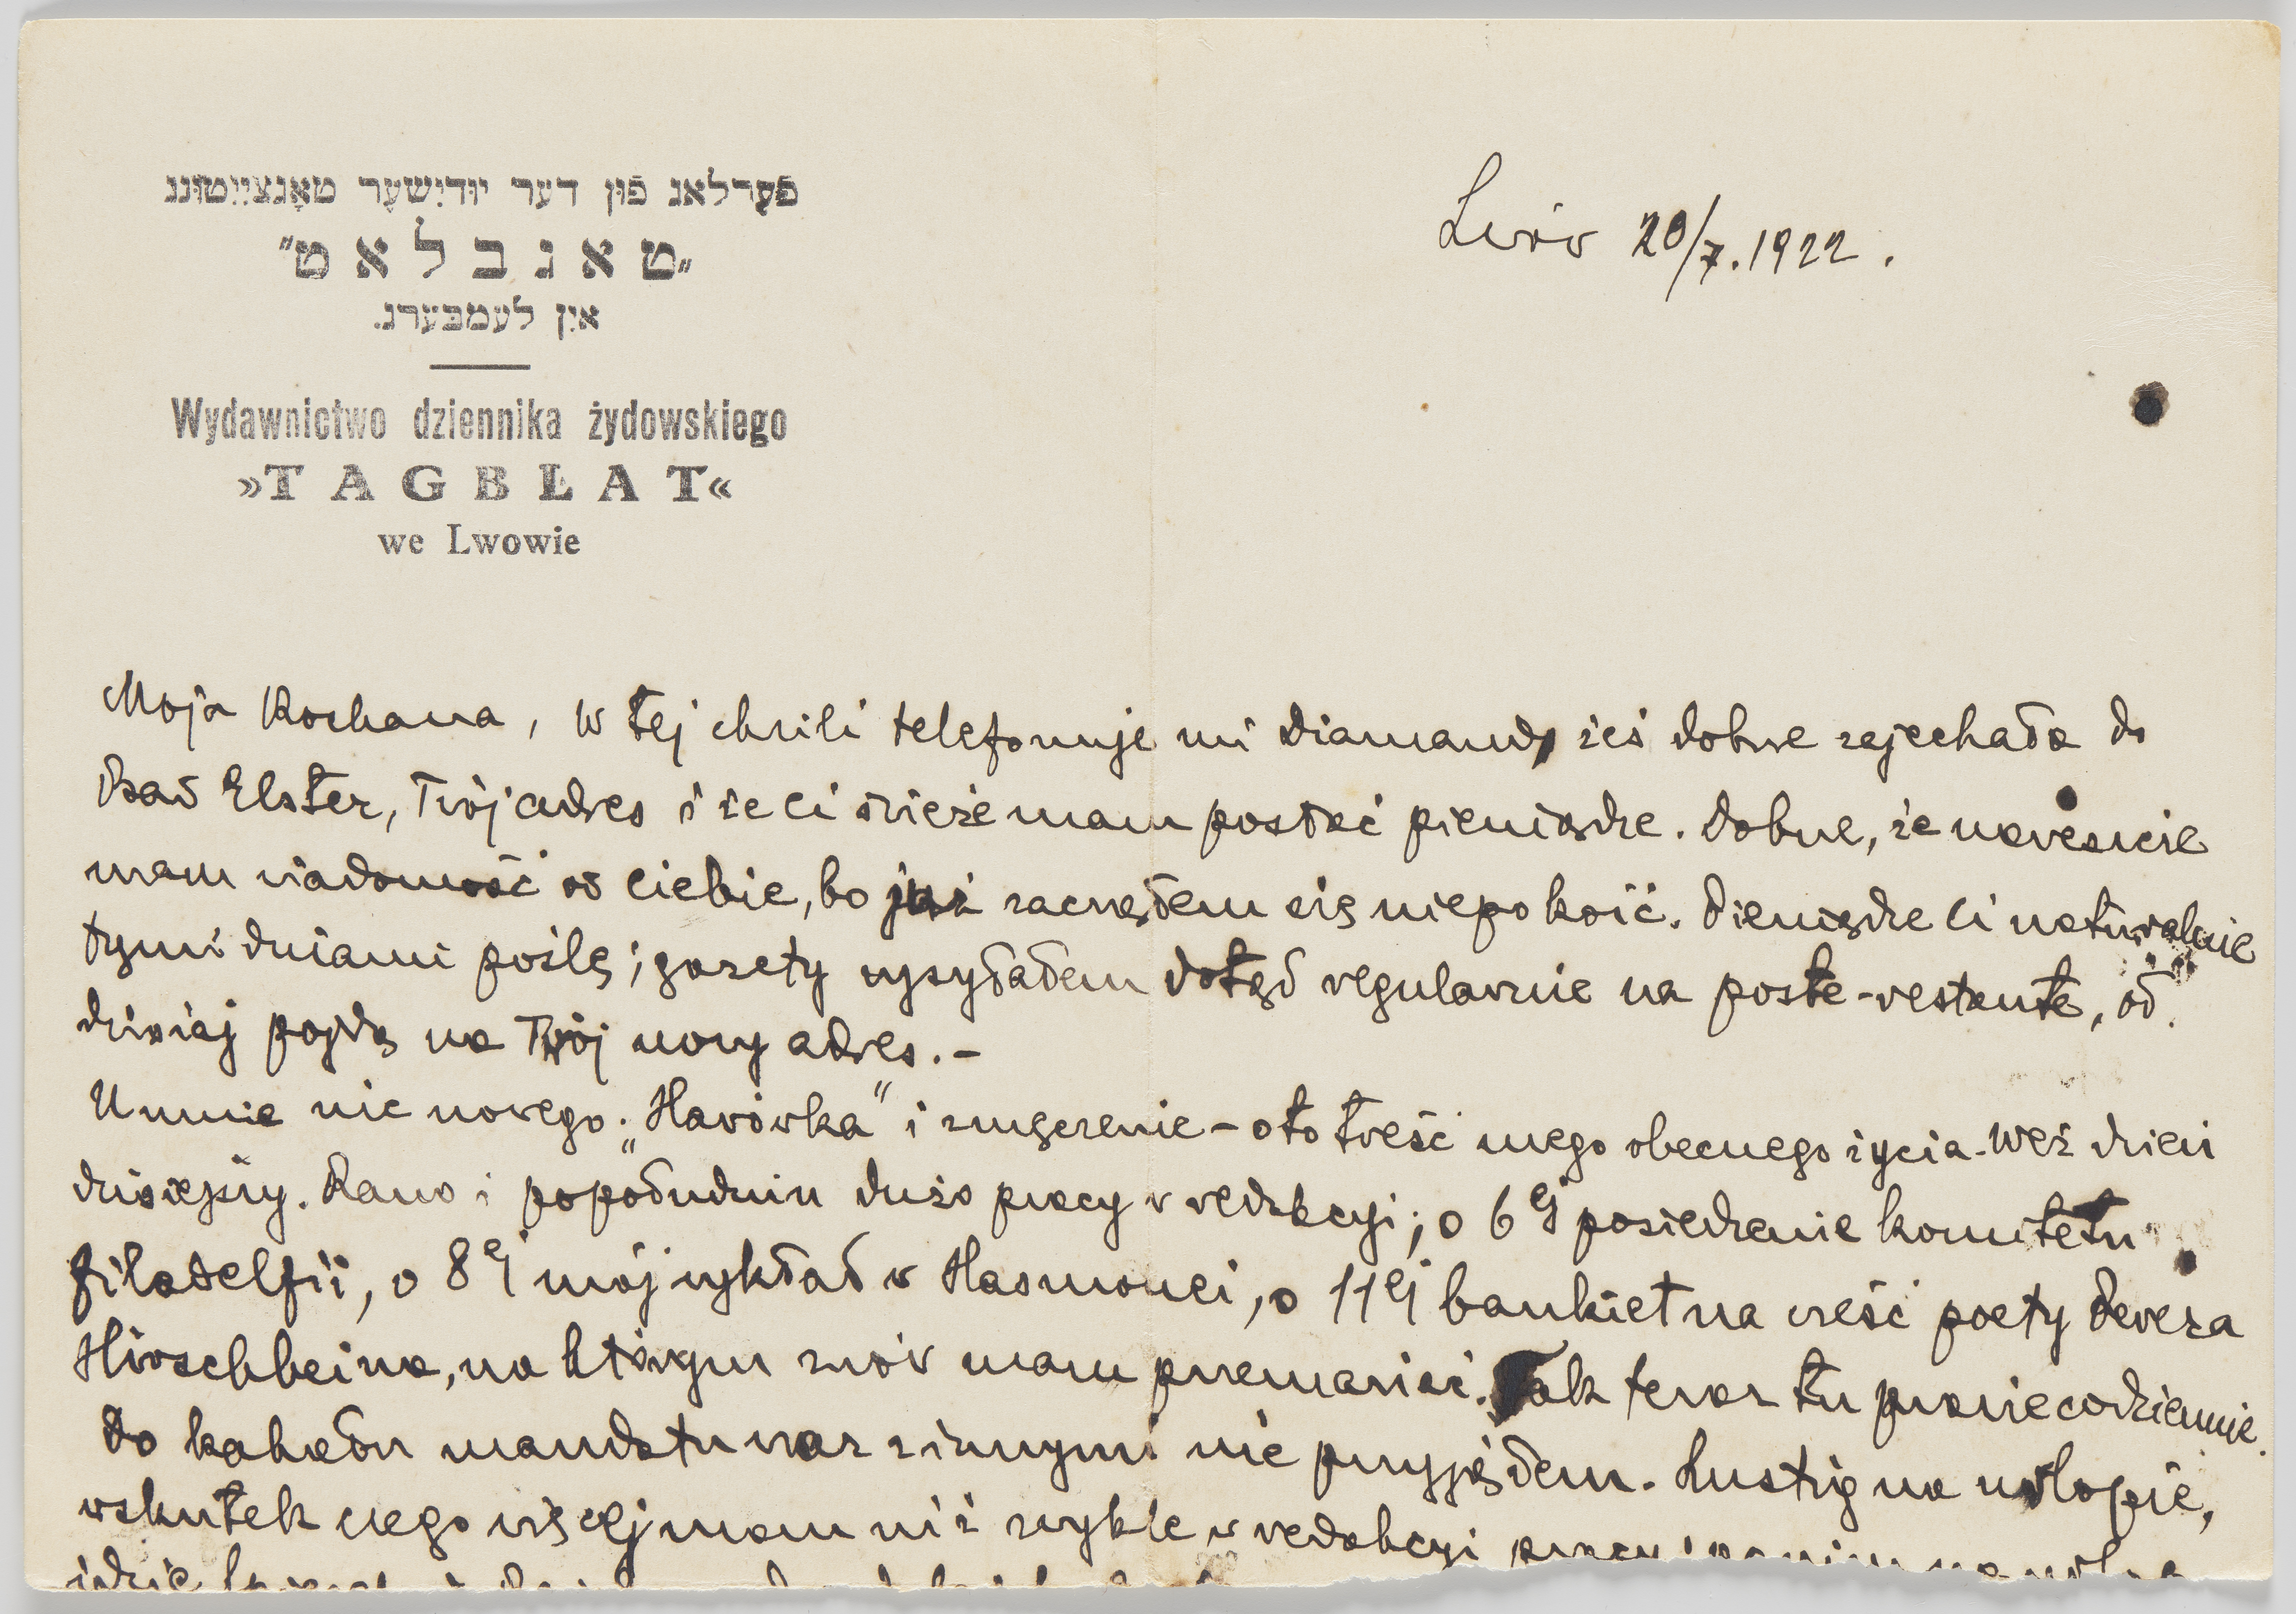 פֿערלאג פֿון דער יודישער טאָגצייטונג
„טאגבלאט"
אין לעמבערג.
Wydawnictwo dziennika żydowskiego
»TAGBLAT«
we Lwowie
Lwów 20/7. 1922.
Moja Kochana, w tej chwili telefonuje mi Diamand, żeś dobrze zajechała do
Bad Elster, Twój adres i że ci świeże mam posłać pieniądze. Dobrze, że nareszcie
mam wiadomość od ciebie, bo już zacząłem się niepokoić. Pieniądze ci naturalnie
tymi dniami poślę; gazety wysyłałem dotąd regularnie na poste-restante, od
dzisiaj pojdą na Twój nowy adres.-
U mnie nic nowego. „Harówka" i zmęczenie - oto treść mego obecnego życia. Weź dzień
dzisiejszy. Rano i popołudniu dużo pracy w redakcyi; o 6ej posiedzenie komitetu
filadelfii, o 8ej mój wykład w Hasmonei, o 11ej bankiet na cześć poety Pereza
Hirschbeina, na którym znów mam przemawiać. Tak teraz tu prawie codziennie.
Do kahału mandatu wraz z innymi nie przyjąłem. Lustig na urlopie,
wskutek czego więcej mam niż zwykle w redakcyi pracy i